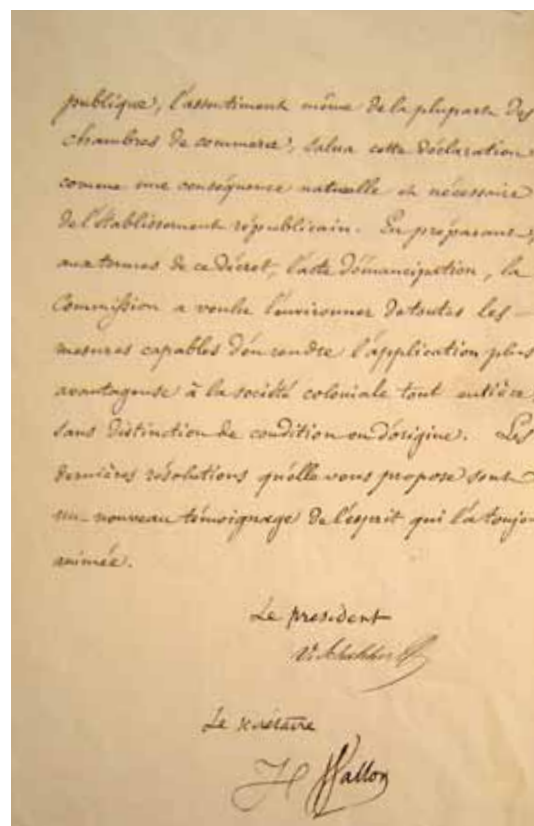 publique, l'assentiment même de la plupart des
chambres de commerce, salua cette déclaration
comme une conséquence naturelle et nécessaire
de l'établissement républicain. En préparant,
aux termes de ce décret, l'acte d'émancipation, la
Commission a voulu l'environner de toutes les
mesures capables d'en rendre l'application plus
avantageuse à la société coloniale tout entière,
sans distinction de condition ou d'origine. Les
dernières résolutions qu'elle vous propose sont
un nouveau témoignage de l'esprit qui l'a toujo
animée.
Le president
V. Schœlcher
Le secrétaire
H Wallon